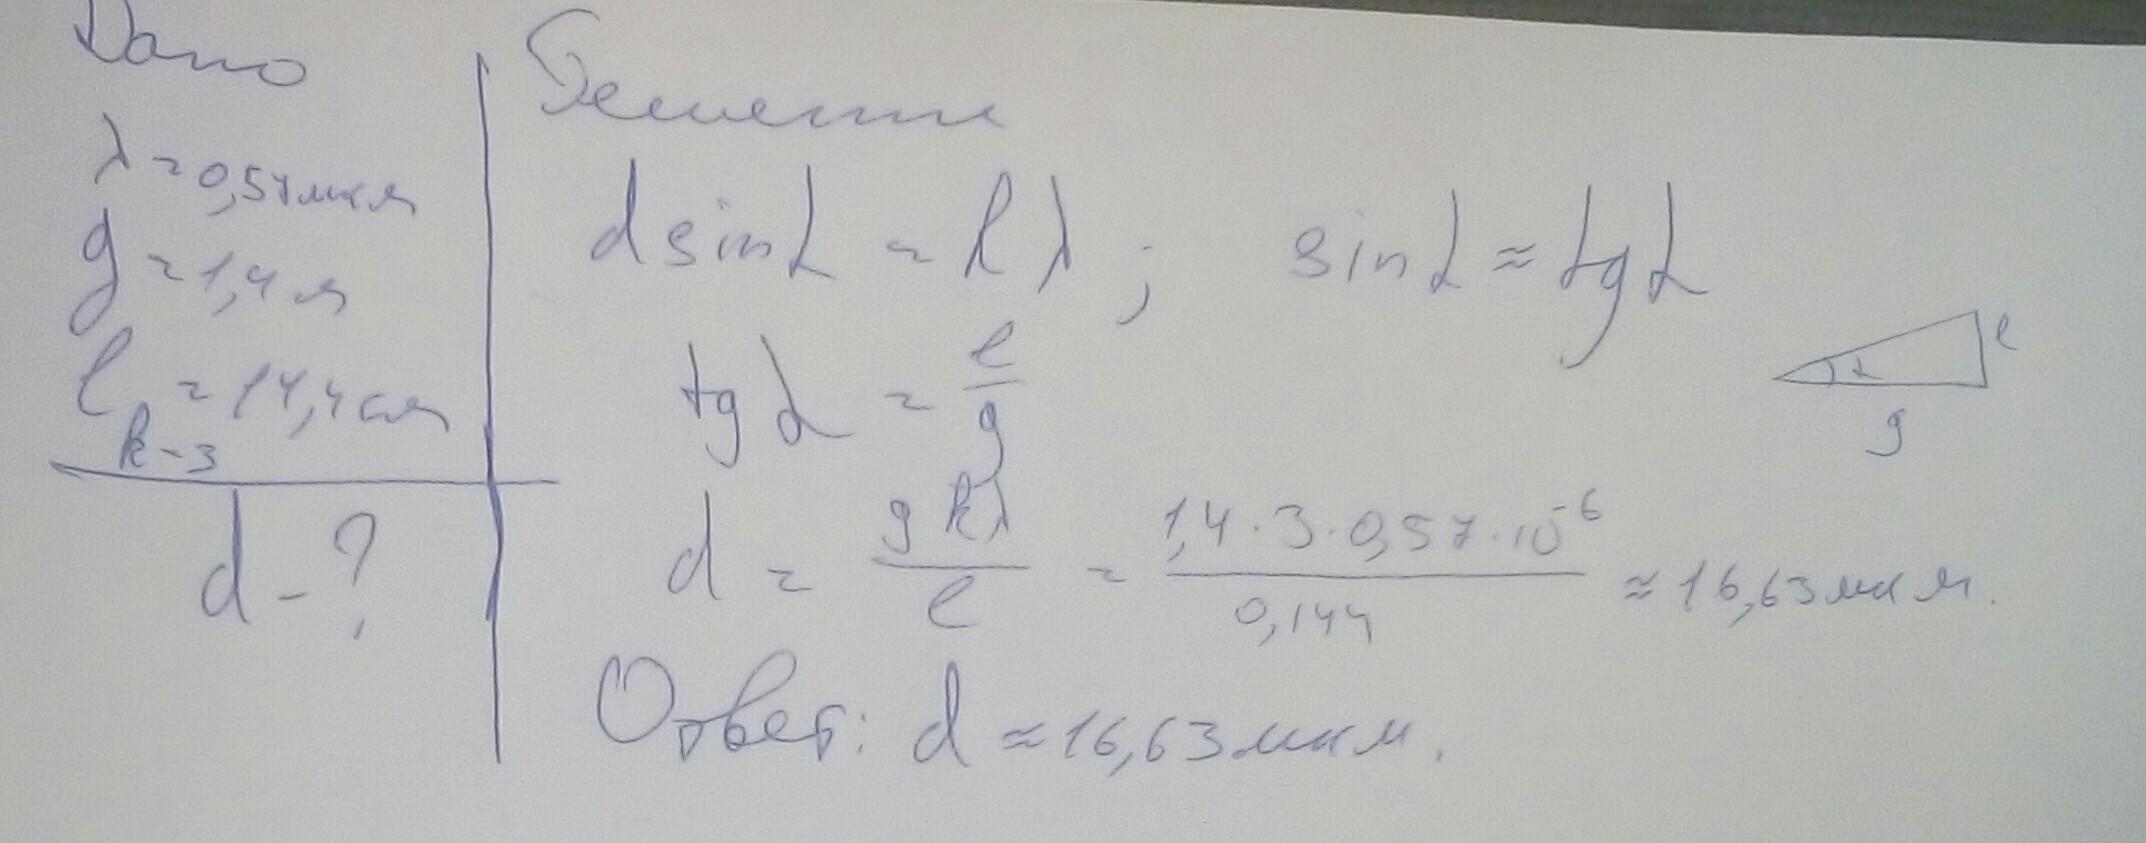 Дано
λ = 0,57 мкм
g = 1,4 м
l = 14,4 см
k - 3
d - ?
Решение
d sin α = k λ ; sin α ≈ tg α
tg α = l/g
α l g
d = g k λ / l = 1,4 · 3 · 0,57 · 10⁻⁶ / 0,144 ≈ 16,63 мкм.
Ответ: d ≈ 16,63 мкм.